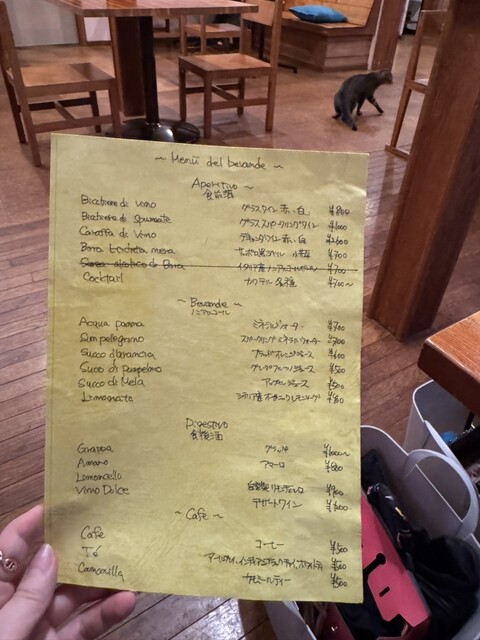 ~ Menù del bevande ~
Aperitivo
食前酒
Bicchiere di vino グラスワイン 赤・白 ¥800
Bicchiere di Spumante グラススパークリングワイン
Caraffa di vino デキャンタワイン 赤・白
Birra 小瓶 ¥700
¥700
Cocktail カクテル 各種 ¥700～
~ Bevande ~
ノンアルコール
Acqua panna ミネラルウォーター ¥700
San pelegrino スパークリングミネラルウォーター ¥700
Succo di arancia ブラッドオレンジジュース ¥600
Succo di pompelmo グレープフルーツジュース ¥500
Succo di Mela アップルジュース ¥500
Limonata シチリア産オーガニックレモンソーダ
Digestivo
食後酒
Grappa グラッパ
Amaro アマーロ
Limoncello 自家製リモンチェッロ
Vino Dolce デザートワイン
~ Cafe ~
Cafe コーヒー ¥500
Té ¥500
Camomilla カモミールティー ¥500